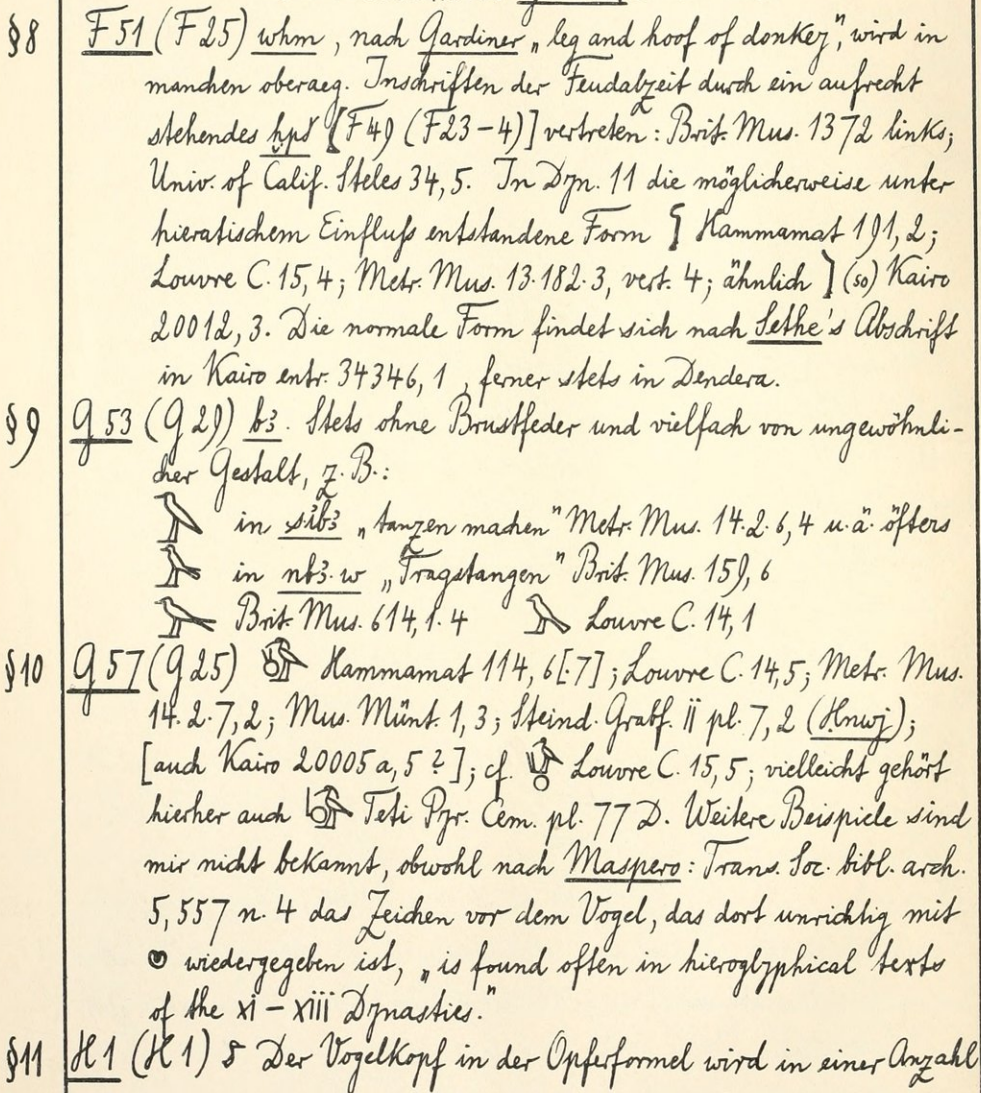 §8 F 51 (F 25) wḥm, nach Gardiner „leg and hoof of donkey", wird in
manchen oberaeg. Inschriften der Feudalzeit durch ein aufrecht
stehendes ḫpš [F 49 (F 23-4)] vertreten: Brit. Mus. 1372 links;
Univ. of Calif. Steles 34,5. In Dyn. 11 die möglicherweise unter
hieratischem Einfluß entstandene Form Hammamat 191,2;
Louvre C. 15,4; Metr. Mus. 13.182.3, vert. 4; ähnlich (so) Kairo
20012, 3. Die normale Form findet sich nach Sethe's Abschrift
in Kairo entr. 34346, 1, ferner stets in Dendera.
§9 G 53 (G 29) bꜣ. Stets ohne Brustfeder und vielfach von ungewöhnli-
cher Gestalt, z. B.:
in „tanzen machen" Metr. Mus. 14.2.6,4 u. ä. öfters
in nbꜣ.w „Tragstangen" Brit. Mus. 159, 6
Brit. Mus. 614, 1. 4 Louvre C. 14, 1
§10 G 57 (G 25) Hammamat 114, 6[-7]; Louvre C. 14,5; Metr. Mus.
14.2.7,2; Mus. Münt. 1, 3; Steind. Grabf. II pl. 7,2 (Ḥnwj);
[auch Kairo 20005 a, 5 ?]; cf. Louvre C. 15,5; vielleicht gehört
hierher auch Teti Pyr. Cem. pl. 77 D. Weitere Beispiele sind
mir nicht bekannt, obwohl nach Maspero: Trans. Soc. bibl. arch.
5,557 n. 4 das Zeichen vor dem Vogel, das dort unrichtig mit
wiedergegeben ist, „is found often in hieroglyphical texts
of the xi – xiii Dynasties."
§11 H 1 (H 1) Der Vogelkopf in der Opferformel wird in einer Anzahl